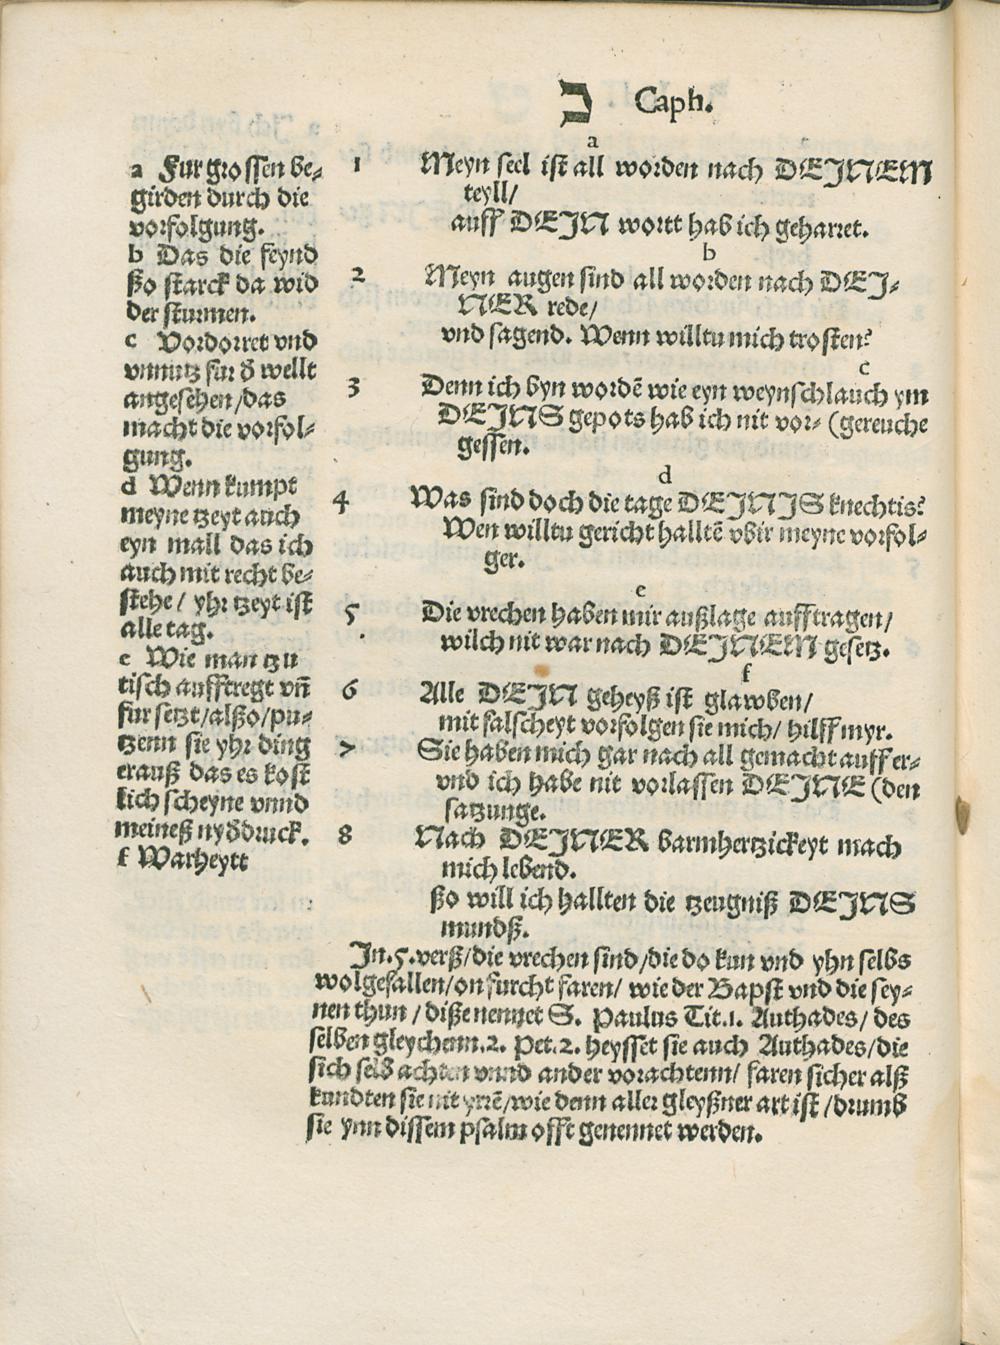 כ Caph.
a
1 Meyn seel ist all worden nach DEJNEM
teyll/
auff DEJN wortt hab ich geharret.
b
2 Meyn augen sind all worden nach DEJ-
NER rede/
vnd sagend. Wenn willtu mich trosten?
c
3 Denn ich byn wordē wie eyn weynschlauch ym
DEJNS gepots hab ich nit vor- (gereuche
gessen.
d
4 Was sind doch die tage DEJNJS knechtis?
Wen willtu gericht halltē vbir meyne vorfol-
ger.
e
5 Die vrechen haben mir außlage aufftragen/
wilch nit war nach DEJNEM gesetz.
f
6 Alle DEJN geheyß ist glawben/
mit falscheyt vorfolgen sie mich/ hilff myr.
7 Sie haben mich gar nach all gemacht auff er-
vnd ich habe nit vorlassen DEJNE (den
satzunge.
8 Nach DEJNER barmhertzickeyt mach
mich lebend.
ßo will ich hallten die tzeugniß DEJNS
mundß.
Jn.5.verß/die vrechen sind/die do kun vnd yhn selbs
wolgefallen/on furcht faren/ wie der Bapst vnd die sey-
nen thun/ diße nennet S. Paulus Tit.1. Authades/ des
selben gleychenn.2. Pet.2. heysset sie auch Authades/die
sich selb achten vnnd ander vorachtenn/ faren sicher alß
kundten sie nit yrrē/wie denn aller gleyßner art ist/drumb
sie ynn dissem psalm offt genennet werden.
a Fur grossen be-
girden durch die
vorfolgung.
b Das die feynd
ßo starck da wid
der sturmen.
c Vordorret vnd
vnnutz fur d̕ wellt
angesehen/das
macht die vorfol-
gung.
d Wenn kumpt
meyne tzeyt auch
eyn mall das ich
auch mit recht be-
stehe/ yhr tzeyt ist
alle tag.
e Wie man tzu
tisch aufftregt vn̄
fur setzt/alßo/pu-
tzenn sie yhr ding
erauß das es kost
lich scheyne vnnd
meineß nyd̕druck.
f Warheytt